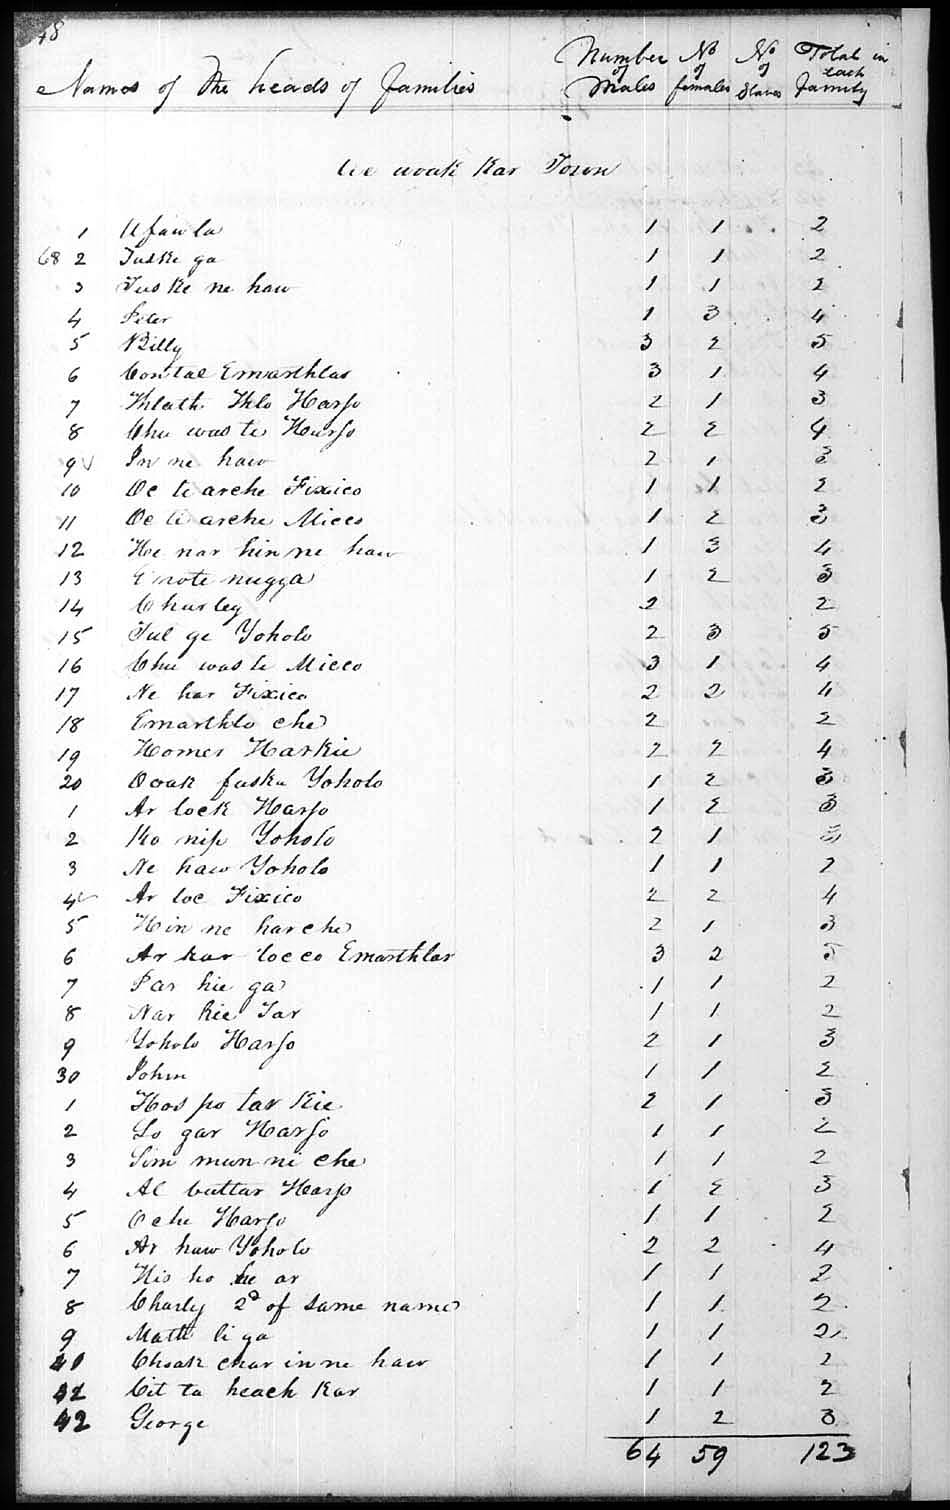 48
Names of the heads of families Number of Males No of females No of Slaves Total in each family
We woak kar Town
1 Ufawla 1 1 2
68 2 Tuske ga 1 1 2
3 Tus ke ne haw 1 1 2
4 Peter 1 3 4
5 Billy 3 2 5
6 Contal Emarthlar 3 1 4
7 Thlath Thlo Harjo 2 1 3
8 Chu was te Harjo 2 2 4
9 In ne haw 2 1 3
10 Oc ti arche Fixico 1 1 2
11 Oc ti arche Micco 1 2 3
12 He nar hin ne haw 1 3 4
13 nugga 1 2 3
14 Charley 2 2
15 Tul ge Yoholo 2 3 5
16 Chu was te Micco 3 1 4
17 Ne har Fixico 2 2 4
18 Emarthlo che 2 2
19 Homer Harkie 2 2 4
20 Ooak fuska Yoholo 1 2 3
1 Ar lock Harjo 1 2 3
2 Ko nip Yoholo 2 1 3
3 Ne haw Yoholo 1 1 2
4 Ar loc Fixico 2 2 4
5 Hin ne har che 2 1 3
6 Ar kar locco Emarthlar 3 2 5
7 Par hie ga 1 1 2
8 Nar kee Tar 1 1 2
9 Yoholo Harjo 2 1 3
30 John 1 1 2
1 Hos po tar kie 2 1 3
2 Lo gar Harjo 1 1 2
3 Sim mun ni che 1 1 2
4 Al buttar Harjo 1 2 3
5 Oche Harjo 1 1 2
6 Ar haw Yoholo 2 2 4
7 His ho he ar 1 1 2
8 Charly 2d of same name 1 1 2
9 Math li ga 1 1 2
40 Choak char in ne haw 1 1 2
41 Cit ta heach kar 1 1 2
42 George 1 2 3
64 59 123